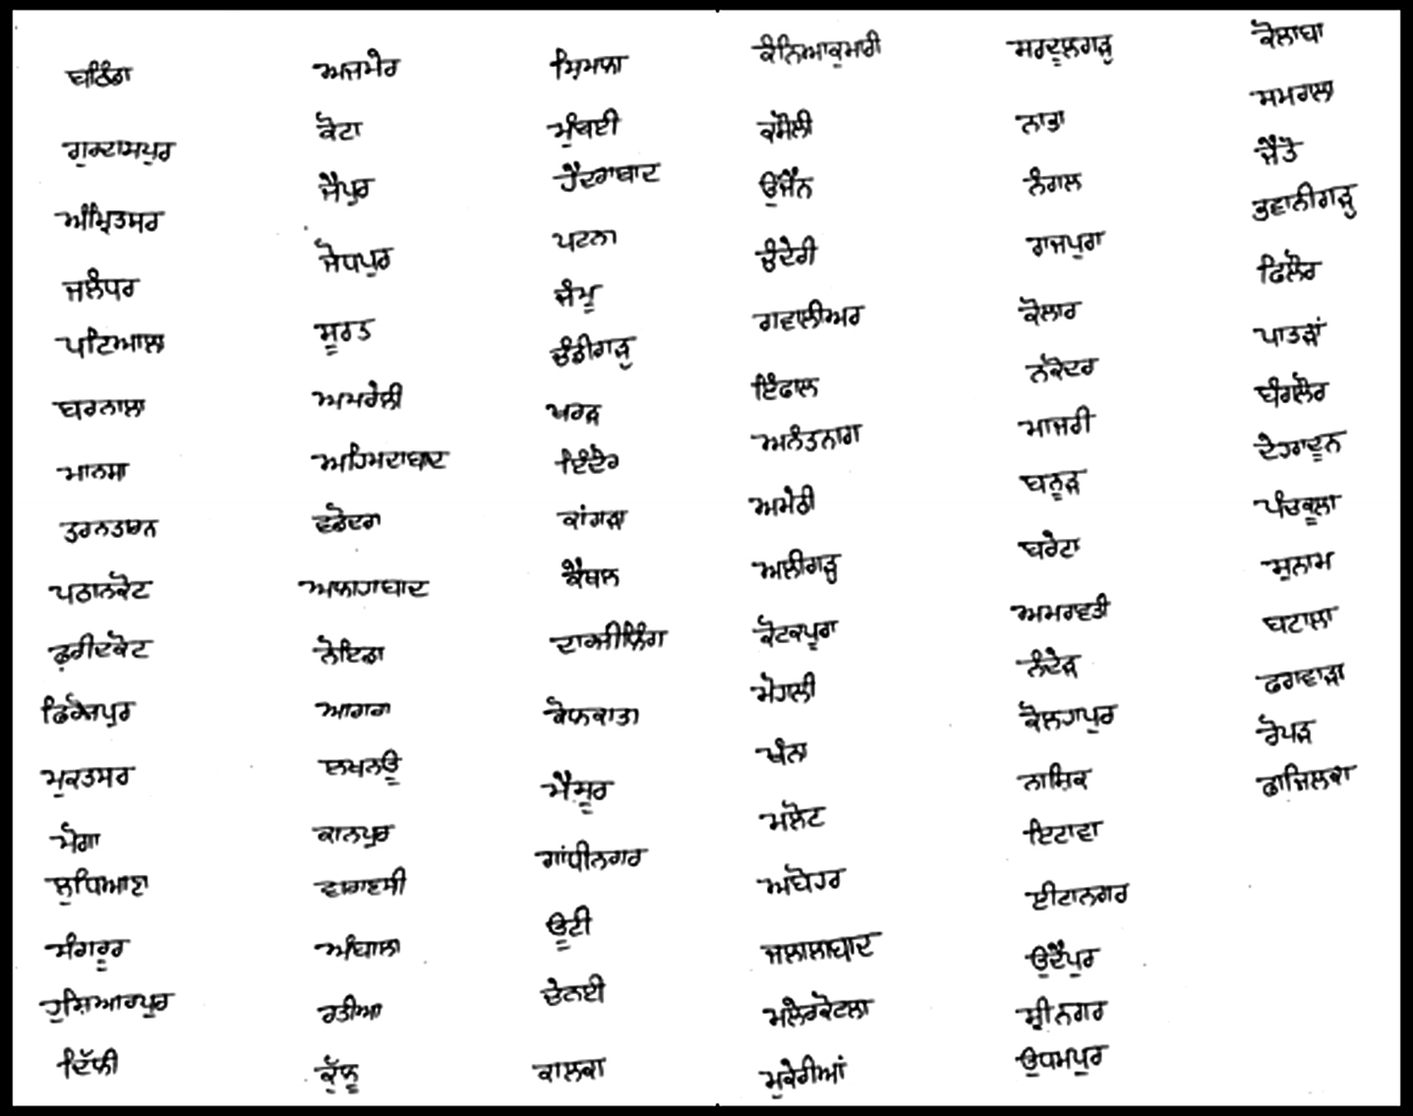 ਬਠਿੰਡਾ
ਗੁਰਦਾਸਪੁਰ
ਅੰਮ੍ਰਿਤਸਰ
ਜਲੰਧਰ
ਪਟਿਆਲਾ
ਬਰਨਾਲਾ
ਮਾਨਸਾ
ਤਰਨਤਾਰਨ
ਪਠਾਨਕੋਟ
ਫ਼ਰੀਦਕੋਟ
ਫਿਰੋਜਪੁਰ
ਮੁਕਤਸਰ
ਮੋਗਾ
ਲੁਧਿਆਣਾ
ਸੰਗਰੂਰ
ਹੁਸ਼ਿਆਰਪੁਰ
ਦਿੱਲੀ
ਅਜਮੇਰ
ਕੋਟਾ
ਜੈਪੁਰ
ਜੋਧਪੁਰ
ਸੂਰਤ
ਅਮਰੇਲੀ
ਅਹਿਮਦਾਬਾਦ
ਵਡੋਦਰਾ
ਅਲਾਹਾਬਾਦ
ਨੋਇਡਾ
ਆਗਰਾ
ਲਖਨਊ
ਕਾਨਪੁਰ
ਵਾਰਾਣਸੀ
ਅੰਬਾਲਾ
ਰਤੀਆ
ਕੁੱਲੂ
ਸ਼ਿਮਲਾ
ਮੁੰਬਈ
ਹੈਦਰਾਬਾਦ
ਪਟਨਾ
ਜੰਮੂ
ਚੰਡੀਗੜ੍ਹ
ਖਰੜ
ਇੰਦੌਰ
ਕਾਂਗੜਾ
ਕੈਥਲ
ਦਾਰਜੀਲਿੰਗ
ਕੋਲਕਾਤਾ
ਮੈਸੂਰ
ਗਾਂਧੀਨਗਰ
ਊਟੀ
ਚੇਨਈ
ਕਾਲਕਾ
ਕੰਨਿਆਕੁਮਾਰੀ
ਕਸੌਲੀ
ਉਜੈਨ
ਚੰਦੇਰੀ
ਗਵਾਲੀਅਰ
ਇੰਫਾਲ
ਅਨੰਤਨਾਗ
ਅਮੇਠੀ
ਅਲੀਗੜ੍ਹ
ਕੋਟਕਪੂਰਾ
ਮੋਹਾਲੀ
ਖੰਨਾ
ਮਲੋਟ
ਅਬੋਹਰ
ਜਲਾਲਾਬਾਦ
ਮਲੇਰਕੋਟਲਾ
ਮੁਕੇਰੀਆਂ
ਸਰਦੂਲਗੜ੍ਹ
ਨਾਭਾ
ਨੰਗਲ
ਰਾਜਪੁਰਾ
ਕੋਲਾਰ
ਨਕੋਦਰ
ਮਾਜਰੀ
ਬਨੂੜ
ਬਰੇਟਾ
ਅਮਰਾਵਤੀ
ਨੰਦੇੜ
ਕੋਲਹਾਪੁਰ
ਨਾਸ਼ਿਕ
ਇਟਾਵਾ
ਈਟਾਨਗਰ
ਉਦੈਪੁਰ
ਸ੍ਰੀਨਗਰ
ਉਧਮਪੁਰ
ਕੋਲਾਬਾ
ਸਮਰਾਲਾ
ਜੈਤੋ
ਭਵਾਨੀਗੜ੍ਹ
ਫਿਲੌਰ
ਪਾਤੜਾਂ
ਬੰਗਲੌਰ
ਦੇਹਰਾਦੂਨ
ਪੰਚਕੂਲਾ
ਸੁਨਾਮ
ਬਟਾਲਾ
ਫਗਵਾੜਾ
ਰੋਪੜ
ਫਾਜਿਲਕਾ